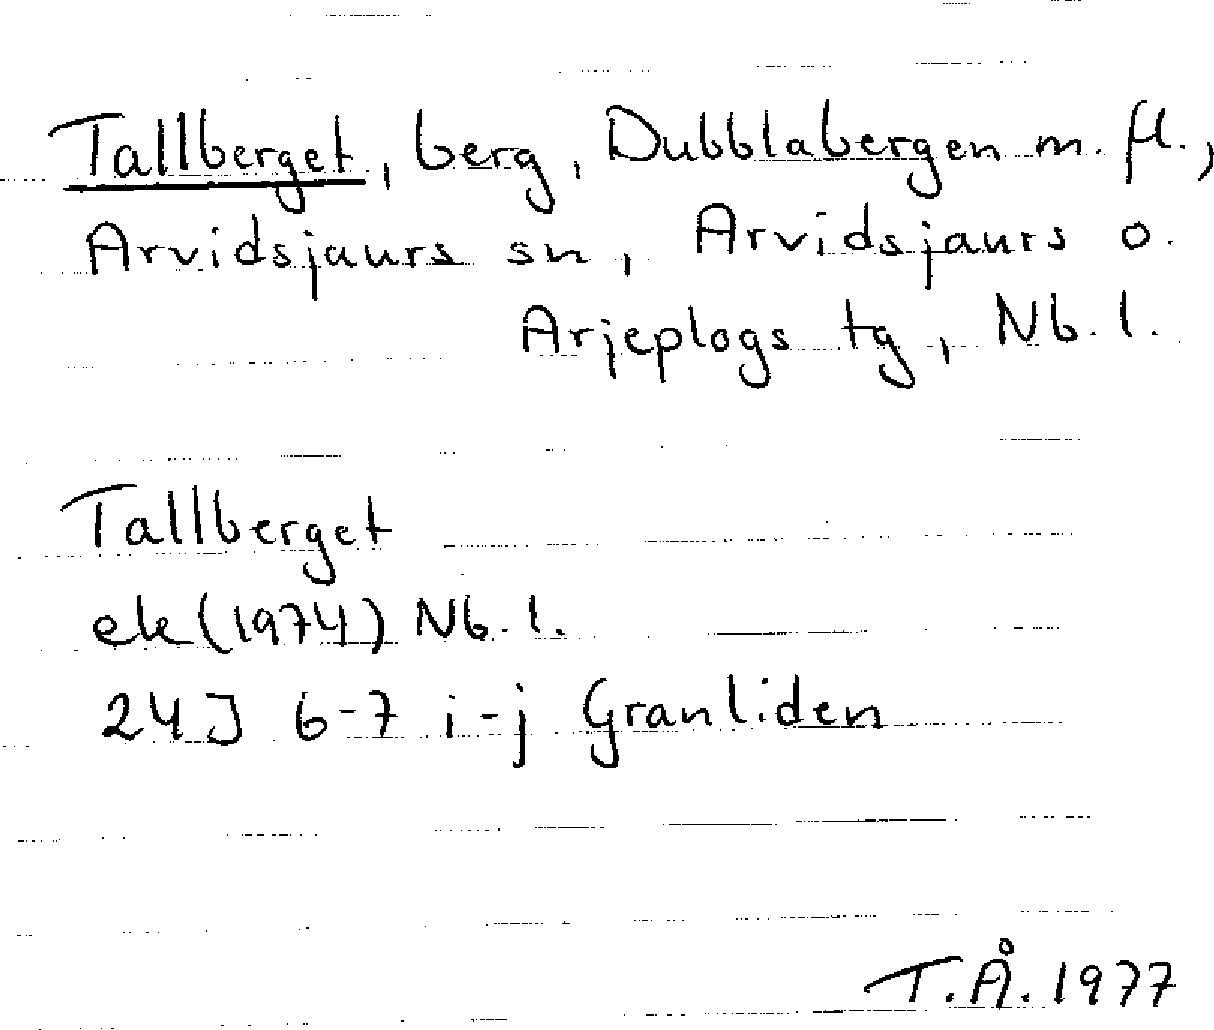 Tallberget, berg, Dubblabergen m. fl.,
Arvidsjaurs sn, Arvidsjaurs o.
Arjeplogs tg, Nb. l.
Tallberget
ek (1974) Nb. l.
24J 6-7 i-j Granliden
T.Å. 1977